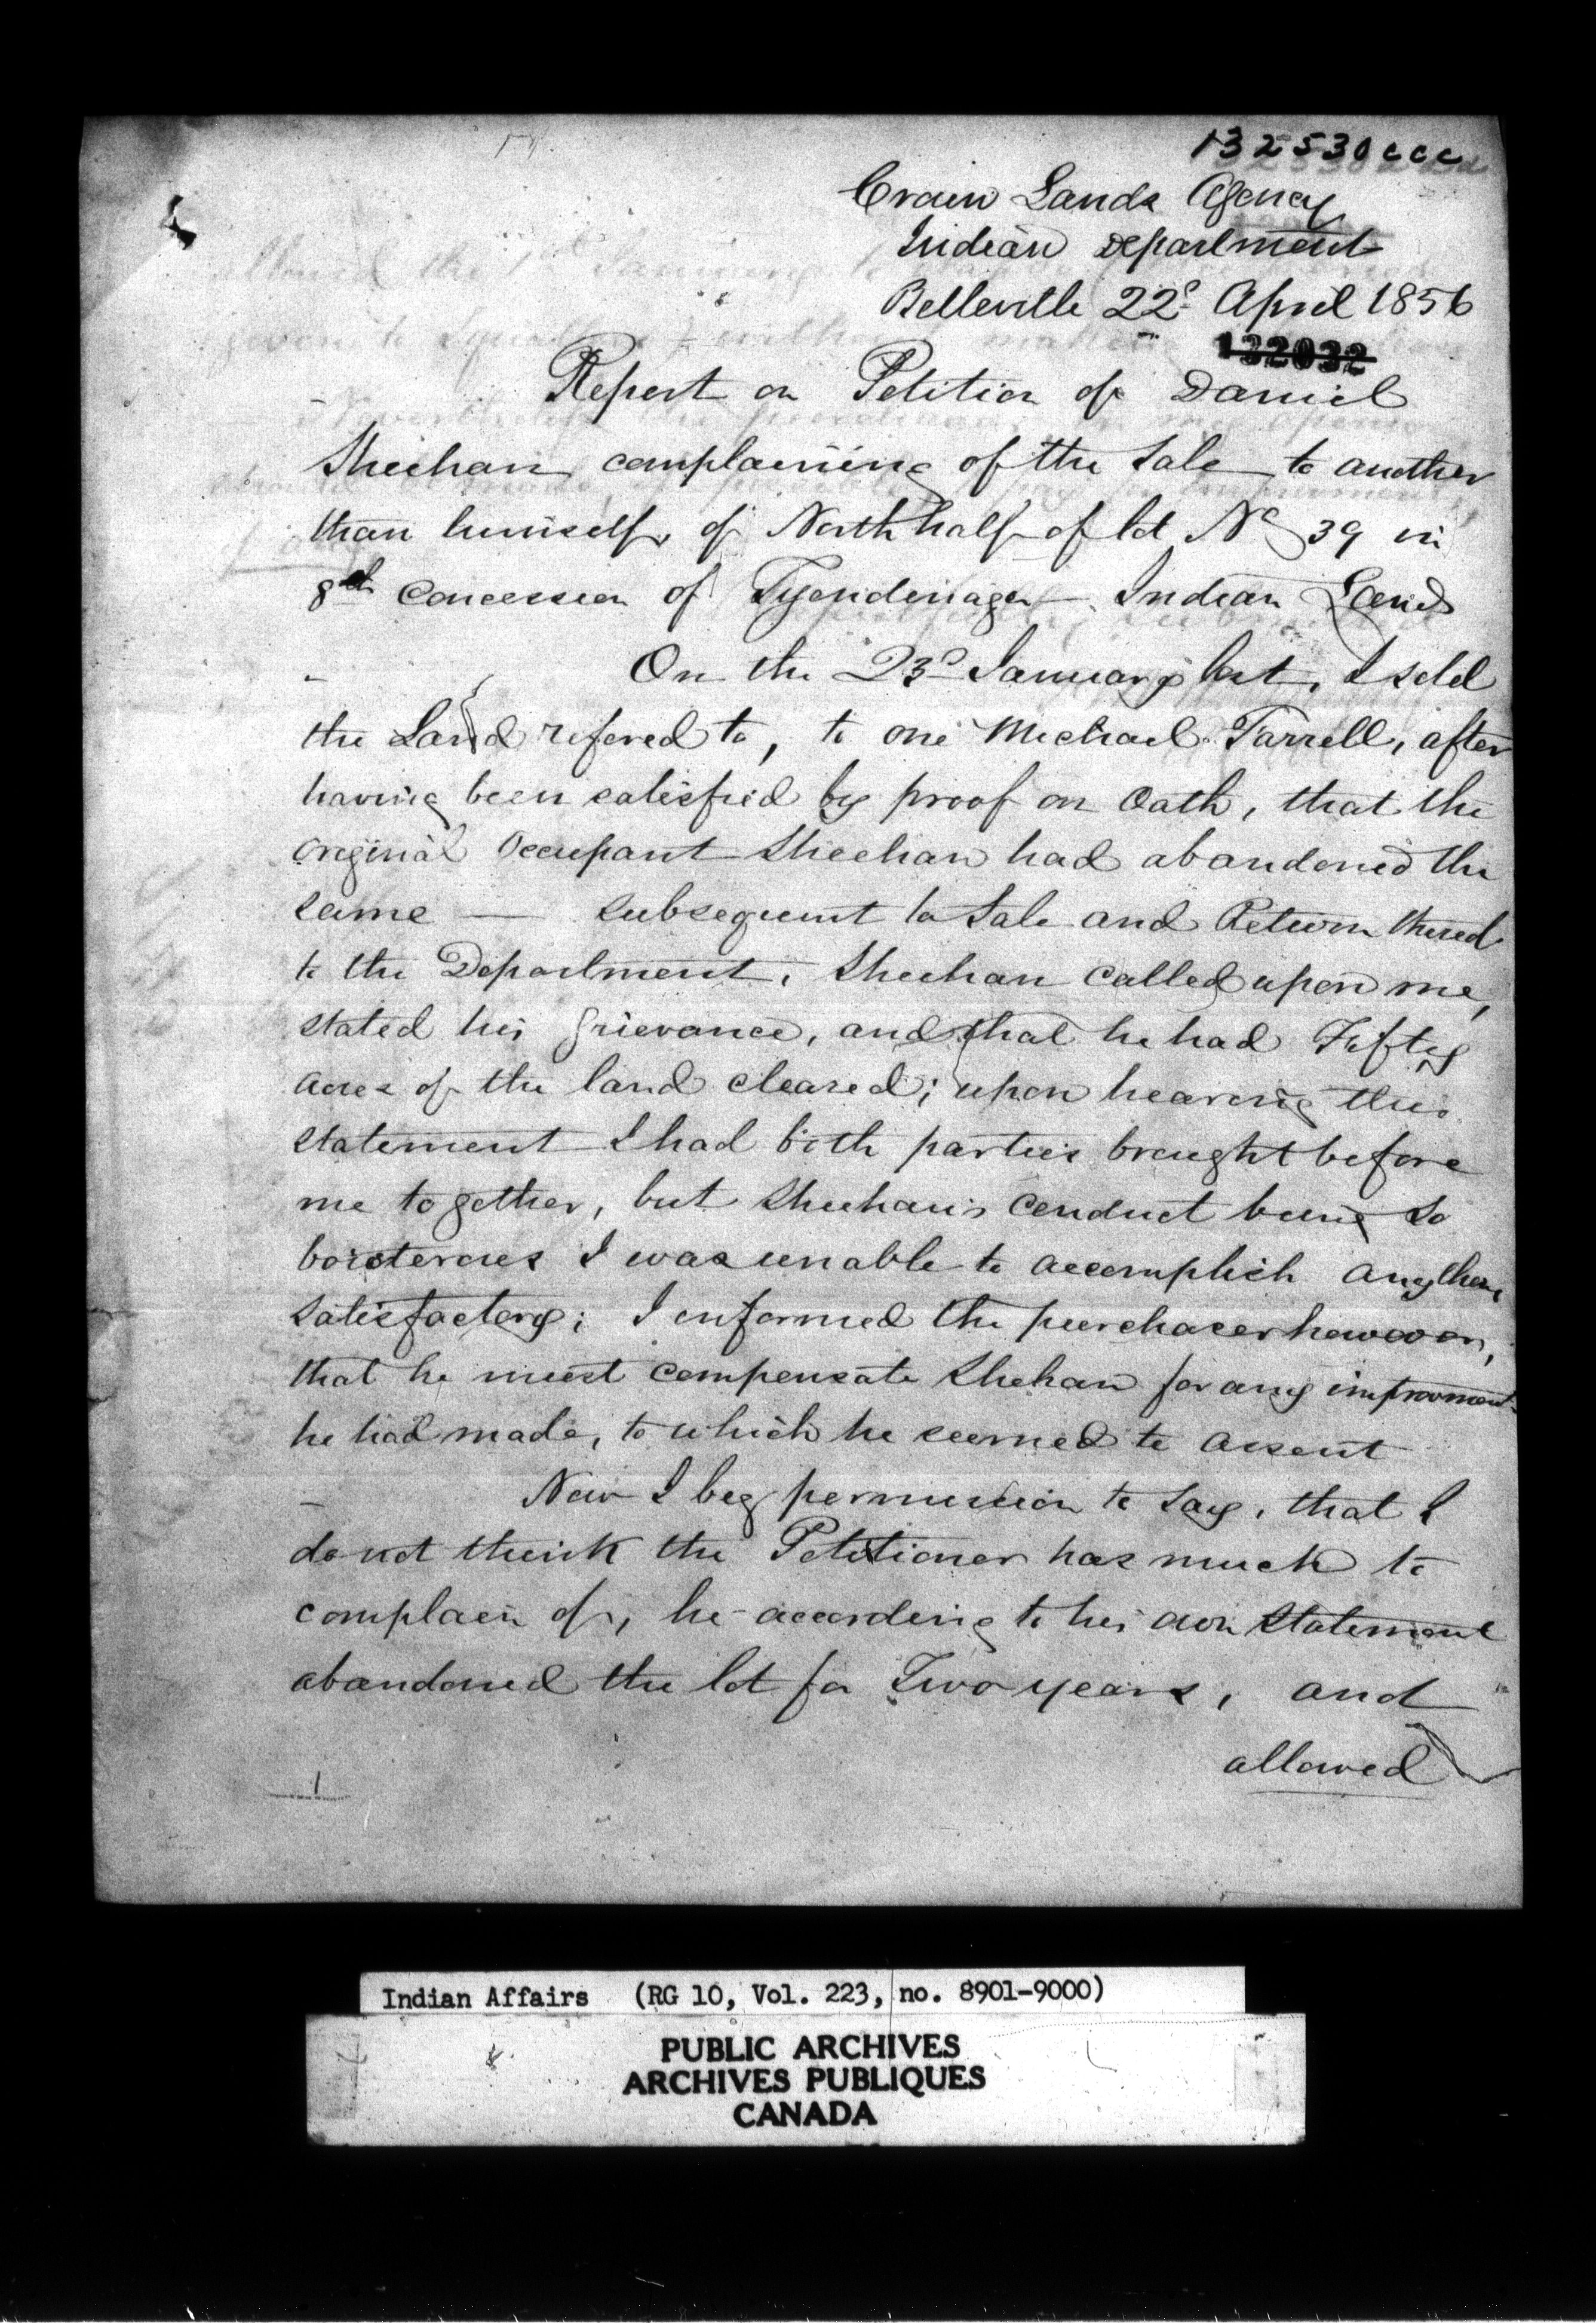 132530ccc
Crown Lands Agency
Indian Department
Belleville 22d April 1856
132032
Report on Petition of Daniel
Sheehan complaining of the Sale to another
than himself, of North half of lot No 39 in
8th Concession of Tyendinaga — Indian Lands
On the 23d January last, I sold
the Land refered to, to one Michael Farrell, after
having been satisfied by proof on Oath, that the
original Occupant Sheehan had abandoned the
same — subsequent to Sale and Return thereof
to the Department, Sheehan called upon me,
stated his grievance, and that he had Fifty
acres of the land cleared; upon hearing this
statement I had both parties brought before
me together, but Sheehan's conduct being so
boisterous I was unable to accomplish anything
satisfactory; I informed the purchaser however,
that he must compensate Shehan for any improvment
he had made, to which he seemed to assent
Now I beg permission to say, that I
do not think the Petitioner has much to
complain of, he according to his own statement
abandoned the lot for Two years, and
allowed
1
Indian Affairs (RG 10, Vol. 223, no. 8901-9000)
PUBLIC ARCHIVES
ARCHIVES PUBLIQUES
CANADA